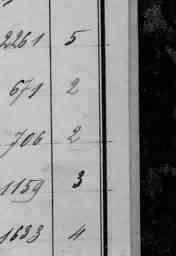 2261 5
671 2
706 2
1159 3
1633 4